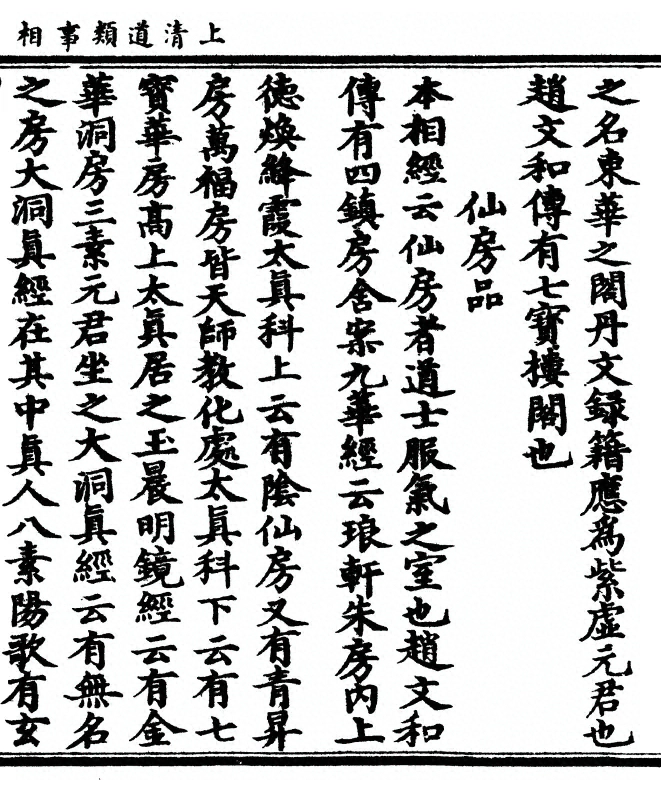 上清道類事相
之名東華之閣丹文録籍應為紫虛元君也
趙文和傳有七寶樓閣也
仙房品
本相經云仙房者道士服氣之室也趙文和
傳有四鎮房舍案九華經云琅軒朱房内上
德煥絳霞太真科上云有陰仙房又有青昇
房萬福房皆天師教化處太真科下云有七
寶華房高上太真居之玉晨明鏡經云有金
華洞房三素元君坐之大洞真經云有無名
之房大洞真經在其中真人八素陽歌有玄